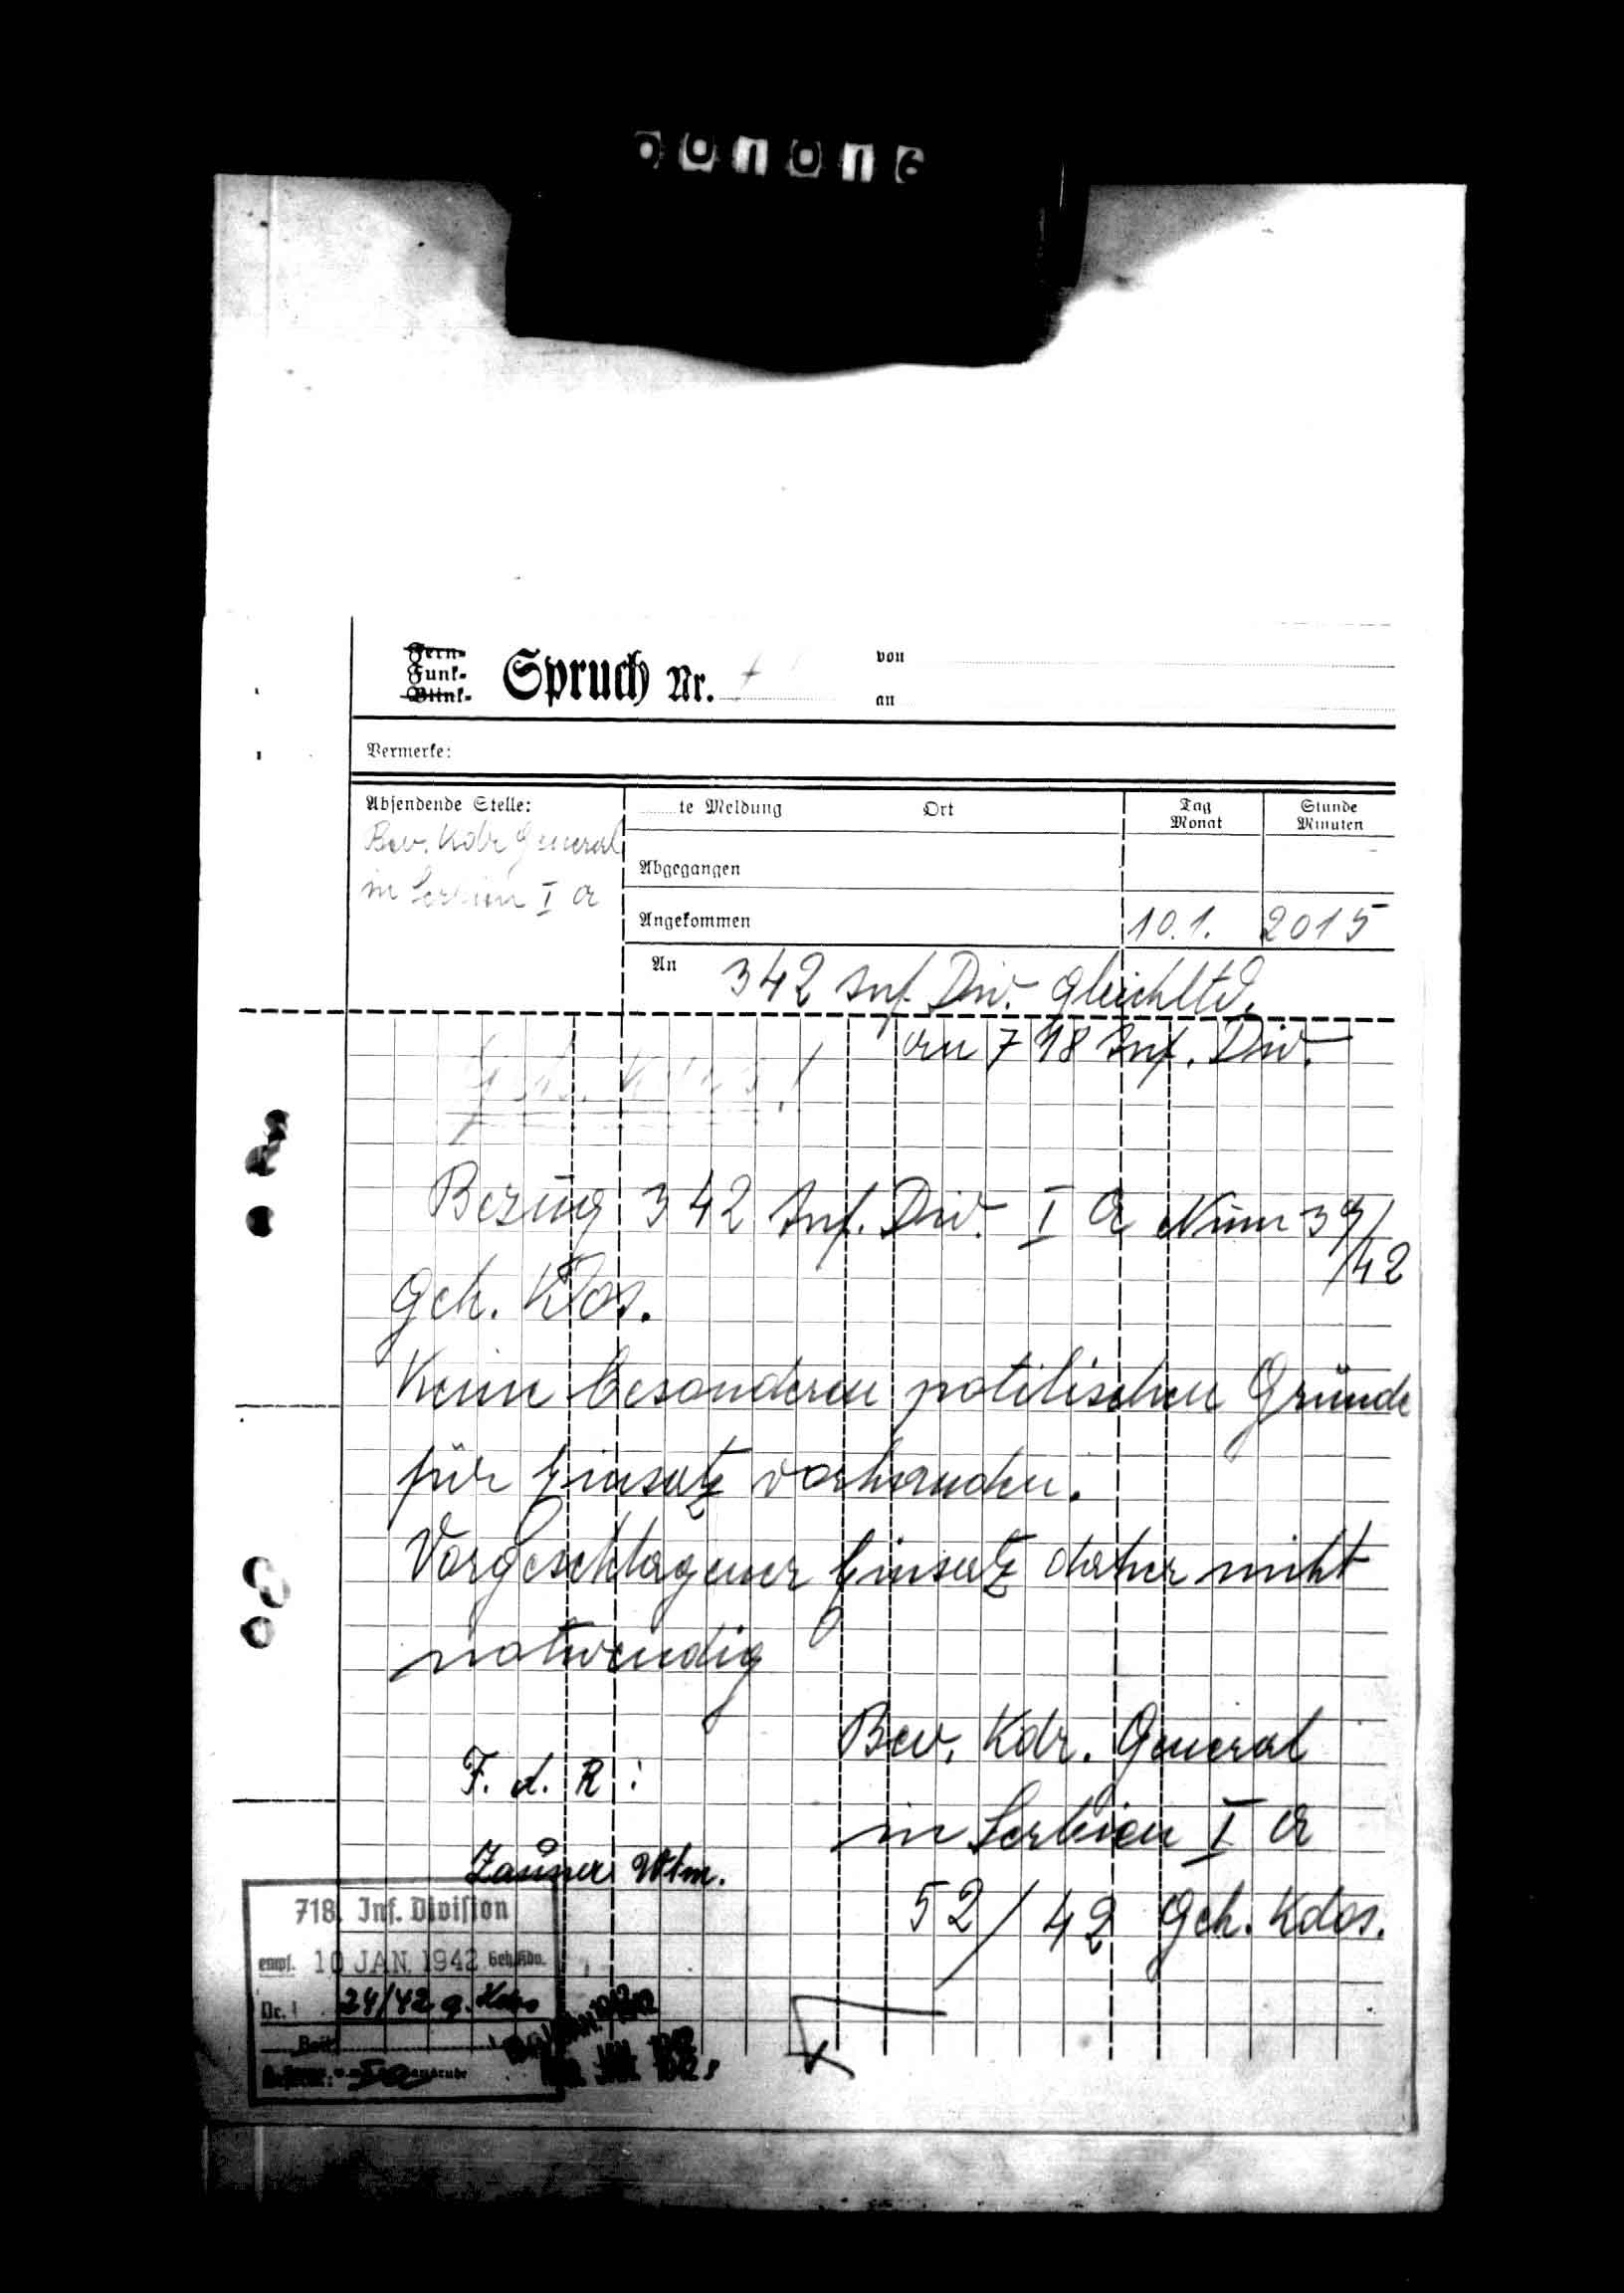 001016
Fern-
Funk-
Blink-
Spruch Nr.
von
an
Vermerke:
Absendende Stelle:
Bev. Kdr General
in Serbien I a
te Meldung Ort Tag Monat Stunde Minuten
Abgegangen
Angekommen 10.1. 2015
An 342 Inf. Div. gleichltd.
an 718 Inf. Div.
Geh. Kdos!
Bezug 342 Inf. Div. I a Num 39/
/42
Geh. Kdos.
Keine besonderen politischen Gründe
für Einsatz vorhanden.
Vorgeschlagener Einsatz daher nicht
notwendig
Bev. Kdr. General
F. d. R :
in Serbien I a
Zauner Wtm.
52/42 Geh. Kdos.
718. Inf. Division
empf. 10 JAN. 1942
Nr. 24/42 g. Kdos